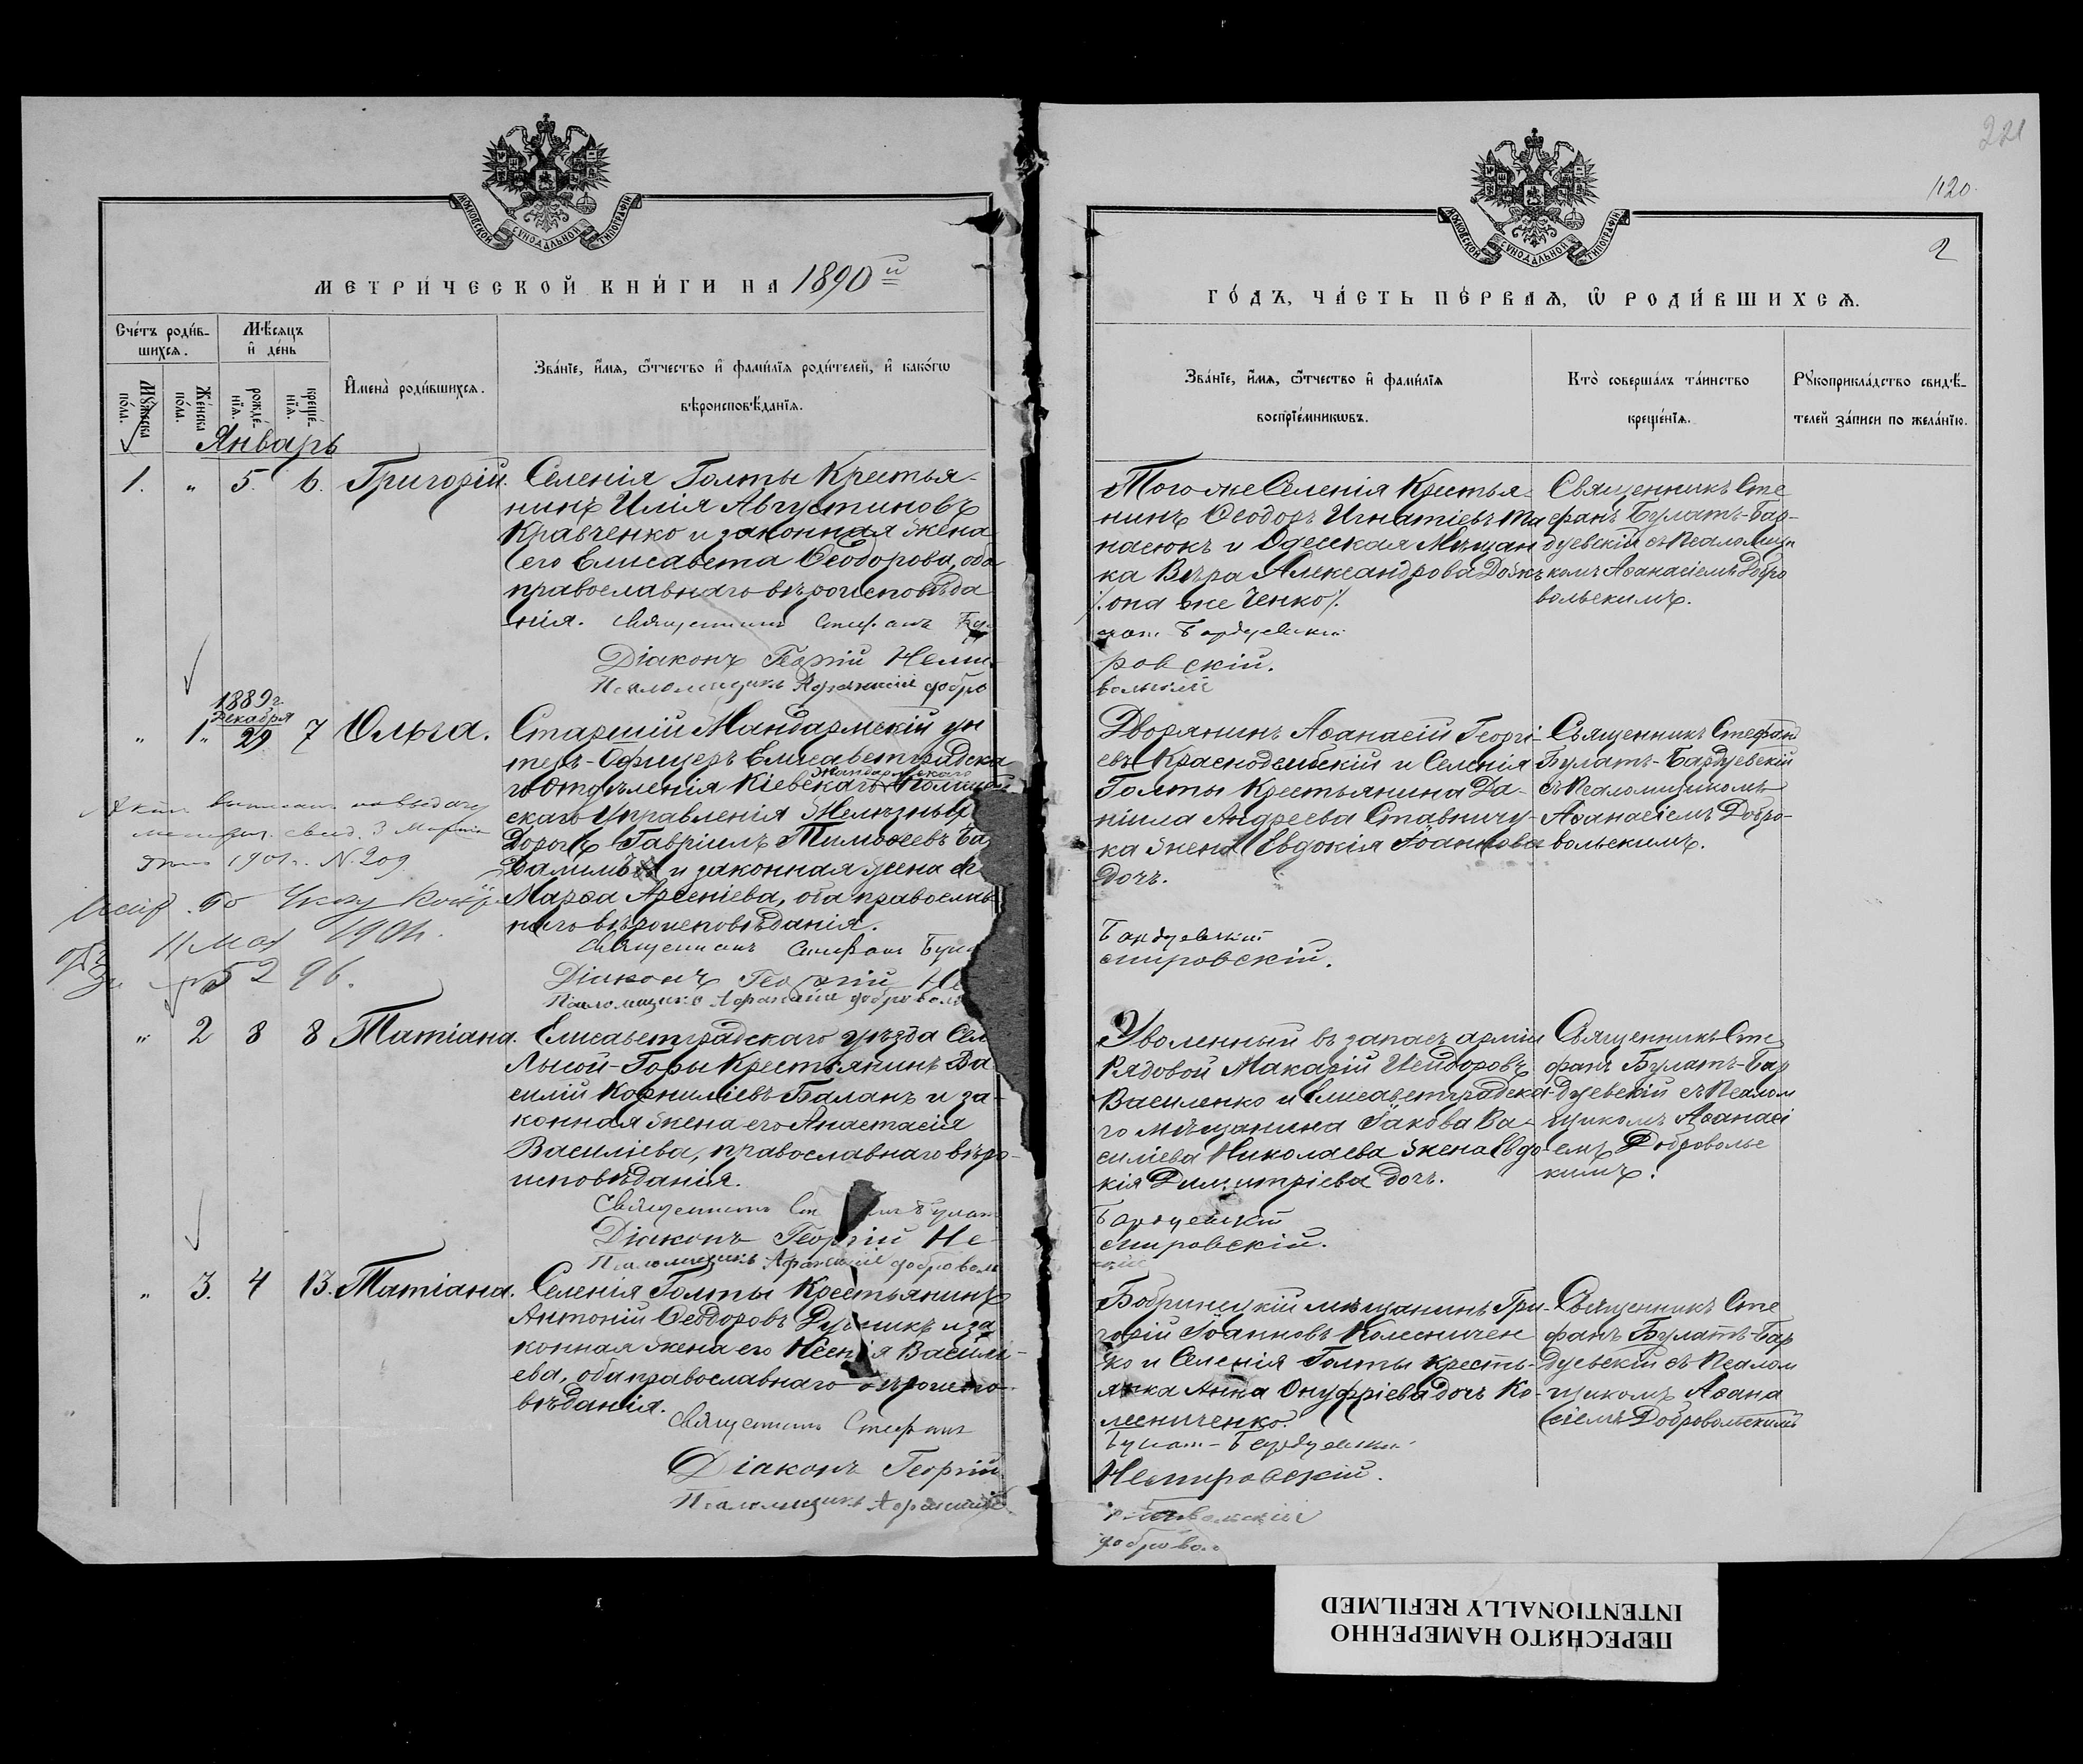 221
120.
2
МОСКОВСКОЙ СѴНОДАЛЬНОЙ ТИПОГРАФІИ
МОСКОВСКОЙ СѴНОДАЛЬНОЙ ТИПОГРАФІИ
МЕТРИ́ЧЕСКОЙ КНИ́ГИ НА 1890й
Сче́тъ роди́в-
шихсѧ.
Мѣ́сѧцъ
и҆ де́нь
Мꙋ́жеска
по́ла.
Же́нска
по́ла.
рожде́-
нїѧ.
креще́-
нїѧ.
И҆мена̀ роди́вшихсѧ.
Зва́нїе, и҆́мѧ, ѻ҆́тчество и҆ фами́лїѧ роди́телей, и҆ како́гѡ
вѣроисповѣ́данїѧ.
Январь
1. " 5. 6. Григорій.
Селенія Голты Крестья-
нинъ Илія Августиновъ
Кравченко и законная жена
его Елисавета Ѳеодорова, оба
православнаго вѣроисповѣда
нія. Священникъ Стефанъ
Діаконъ Георгій Неми-
Псаломщикъ Афанасій добро
1889 г.
Декабря
" 1. 29 7 Ольга.
Старшій Жандармскій ун
теръ-Офицеръ Елисаветградска
го Отдѣленія Кіевскаго Жандармскаго Полицей
скаго Управленія Желѣзныхъ
Дорогъ Гавріилъ Тимоѳеевъ
и законная жена его
Марѳа Арсеніева, оба православ
наго вѣроисповѣданія.
Священникъ Стефанъ Була
Діаконъ Георгій Не
Псаломщикъ Афанасій доброволь
выдачу
свид. 3 Марта
1901 г. N. 209
по Указу
11 Мая 1901г.
№ 5296.
" 2 8 8 Татіана.
Елисаветградскаго уѣзда Сел
Лысой-Горы Крестьянинъ Ва
силій Корниліевъ Баланъ и за-
конная жена его Анастасія
Василіева, православнаго вѣро-
исповѣданія.
Священникъ Булат
Діаконъ Георгій Не-
Псаломщикъ Афанасій доброволь
" 3. 4 13. Татіана.
Селенія Голты Крестьянинъ
Антоній Ѳеодоровъ и за
конная жена его Ксенія Василі-
ева, оба православнаго вѣроиспо-
вѣданія.
Священникъ Стефанъ
Діаконъ Георгій
Псаломщикъ Афанасій
ГО́ДЪ, ЧА́СТЬ ПЕ́РВАѦ, Ѽ РОДИ́ВШИХСѦ.
Зва́нїе, и҆́мѧ, ѻ҆́тчество и҆ фами́лїѧ
воспрїе́мникѡвъ.
Кто̀ соверша́лъ та́инство
креще́нїѧ.
Рꙋкоприкла́дство свидѣ́-
телей за́писи по жела́нїю.
Того же Селенія Крестья-
нинъ Ѳеодоръ Игнатіевъ Та
насюкъ и Одесская Мѣщан
ка Вѣра Александрова
/: она же Ченко /:
лат Бардуевскій
ровскій.
вольскій
Священникъ Сте
фанъ Булатъ-Бар-
дуевскій съ Псаломщи
комъ Аѳанасіемъ Добро
вольскимъ.
Дворянинъ Аѳанасій Георгі-
евъ и Селенія
Голты Крестьянина Да-
ніила Андреева Ставничу-
ка жена Евдокія Іоаннова
дочь.
Бардуевскій
мировскій.
Священникъ Стефанъ
Булатъ-Бардуевскій
съ Псаломщикомъ
Аѳанасіемъ Добро-
вольскимъ.
Уволенный въ запасъ арміи
Рядовой Макарій Исидоровъ
Василенко и Елисаветградска
го мѣщанина Іакова Ва-
силіева Николаева жена Евдо
кія Димитріева дочь.
Бардуевскій
мировскій.
скій
Священникъ Сте
фанъ Булатъ-Бар
дуевскій съ Псалом
щикомъ Аѳанасі
емъ Добровольс
кимъ.
Бобринецкій мѣщанинъ Гри-
горій Іоанновъ Колесничен
ко и Селенія Голты кресть-
янка Анна Онуфріева дочь Ко-
лесниченко.
Булат-Бардуевскій
Немировскій.
добровол
Священникъ Сте
фанъ Булатъ-Бар
дуевскій съ Псалом
щикомъ Аѳана
сіемъ Добровольскимъ
ПЕРЕСНЯТО НАМЕРЕННО
INTENTIONALLY REFILMED